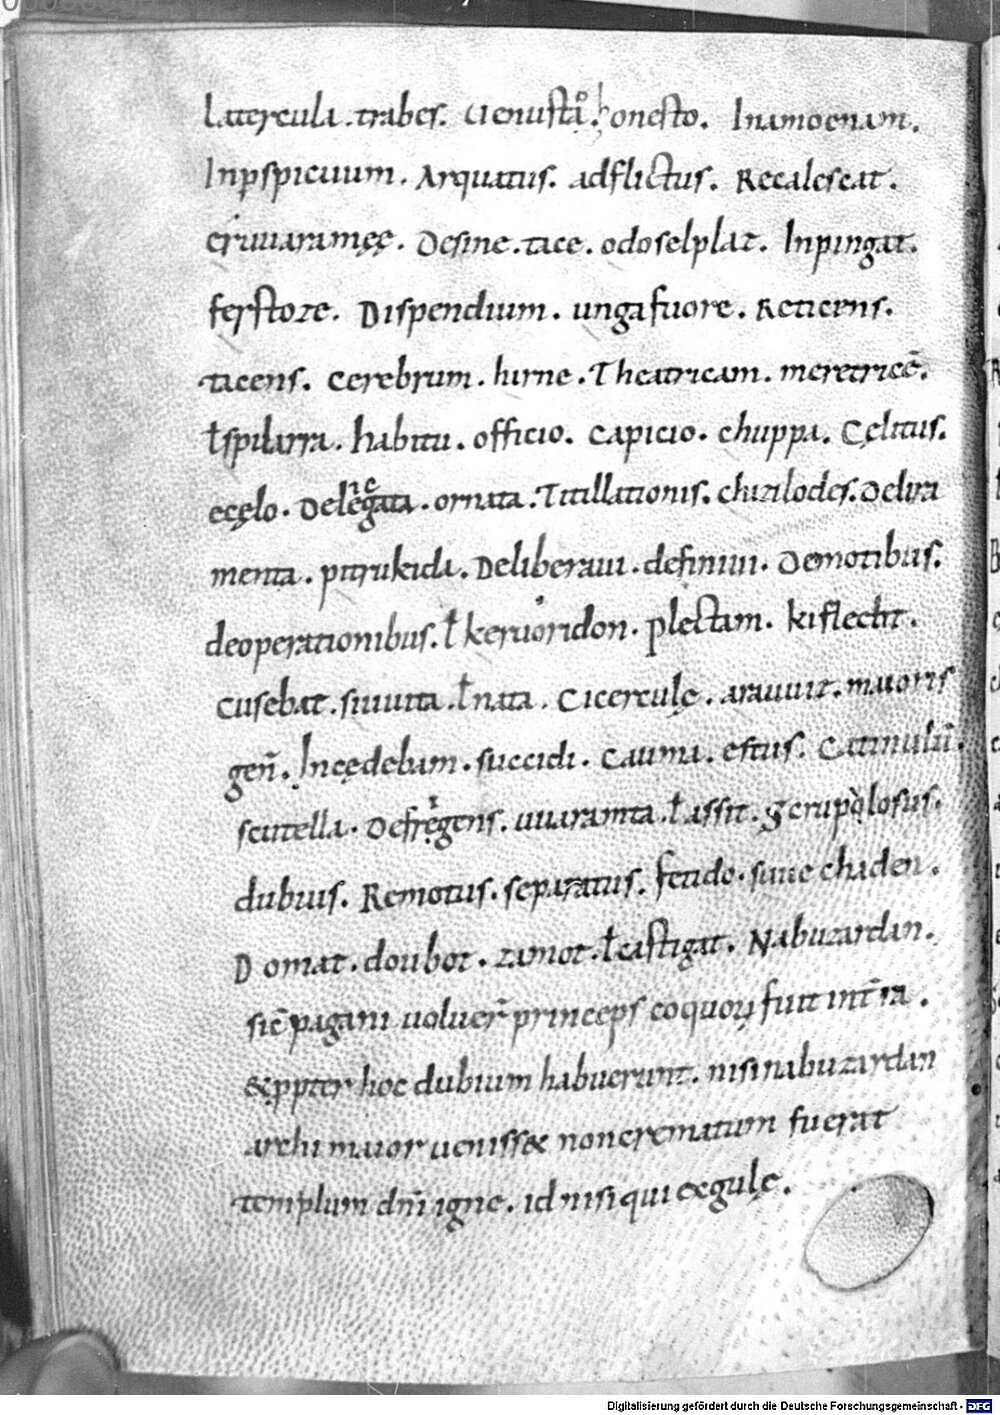 Latercula . trabes. Uenustaͦ . honesto. Inamoenam.
Inꝑspicuum. Arquatus. adflictus. Recalescat.
Desine . tace . odoselplaz. Inpingat.
ferstoze. Dispendium. ungafuore. Reticens.
tacens. Cerebrum . hirne . Theatricam . meretricē.
ł spilarra. habitu. officio. Capicio. chuppa. Cęlitus.
ecęlo. ornata . Titillationis. chizilodes. Delira
menta. pitrukida. Deliberaui . definiui. Demotibus.
deoperationibus. ł keruoridon. plectam. kiflecht.
Cusebat . siuuita . ł nata. Cicerculę. arauuiz. maioris
geñ. Incędebam . succidi. Cauma. estus. Catinulū.
scutella. uuaramta . ł assit. Scrupolosus.
dubius. Remotus. separatus. fetido. chaden.
Domat. doubot. zamot. ł castigat. Nabuzardan.
sic̄ pagani uoluer̄ princeps coquoꝝ fuit int̄ ra.
&ꝓpter hoc dubium habuerunt. nisi nabuzardan
archi maior ueniss& non crematum fuerat
templum dn̄i igne. id nisi qui exgulę.